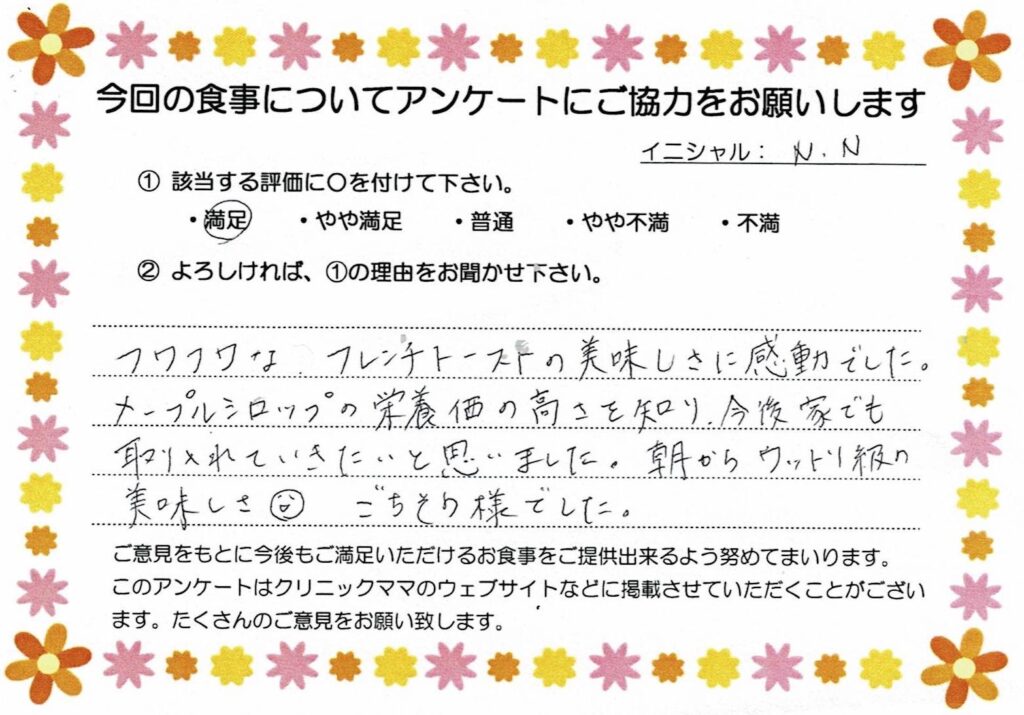 今回の食事についてアンケートにご協力をお願いします
イニシャル： N.N
① 該当する評価に〇を付けて下さい。
・満足 ・やや満足 ・普通 ・やや不満 ・不満
② よろしければ、①の理由をお聞かせ下さい。
フワフワな フレンチトーストの美味しさに感動でした。
メープルシロップの栄養価の高さを知り、今後家でも
取り入れていきたいと思いました。朝からウットリ級の
美味しさ ごちそう様でした。
ご意見をもとに今後もご満足いただけるお食事をご提供出来るよう努めてまいります。
このアンケートはクリニックママのウェブサイトなどに掲載させていただくことがござい
ます。たくさんのご意見をお願い致します。